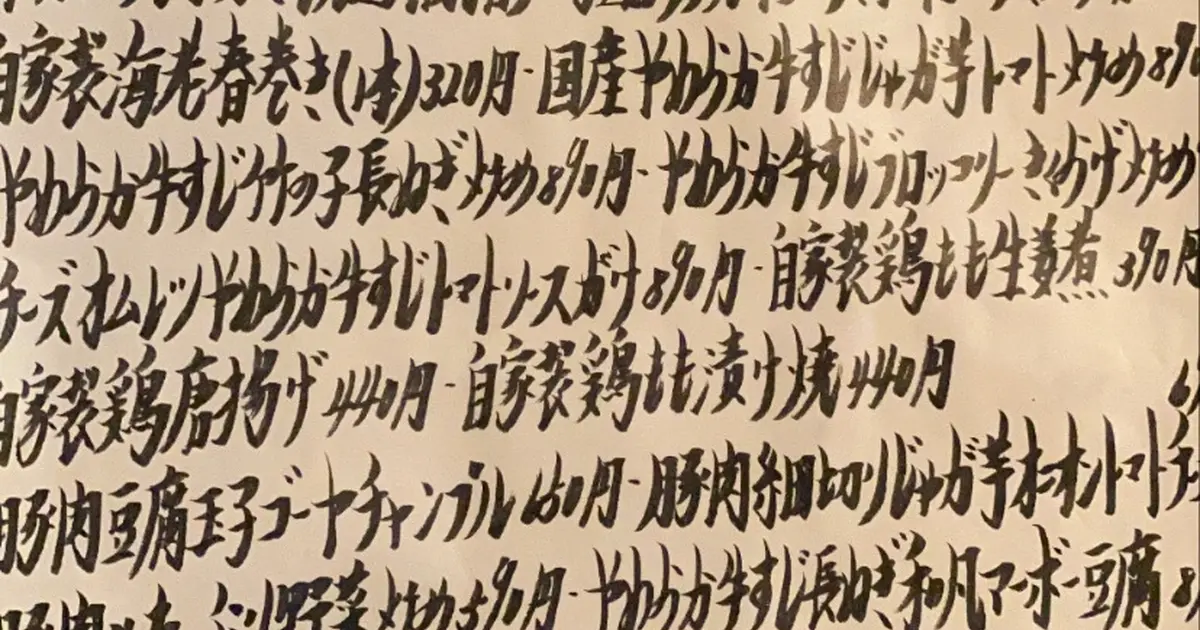 自家製海老春巻き(1本)320円・国産やわらか牛すじじゃが芋トマト炒め8
やわらか牛すじ竹の子長ねぎ炒め890円・やわらか牛すじブロッコリーきくらげ炒め
チーズオムレツやわらか牛すじトマトソースがけ890円・自家製鶏もも生姜煮390円
自家製鶏唐揚げ440円・自家製鶏もも漬け焼440円
豚肉豆腐玉子ゴーヤチャンプル650円・豚肉細切りじゃが芋オニオントマトチ
野菜炒め590円・やわらか牛すじ長ねぎ和風マーボー豆腐8